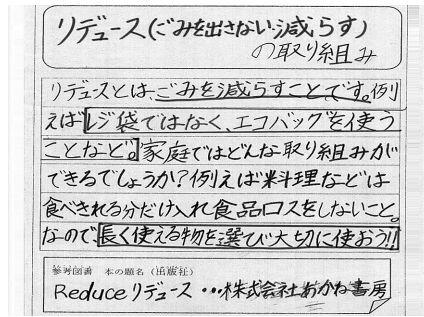 リデュース(ごみを出さない減らす)
の取り組み
リデュースとは、ごみを減らすことです。例
えばレジ袋ではなく、エコバッグを使う
ことなど。家庭ではどんな取り組みが
できるでしょうか?例えば料理などは
食べきれる分だけ入れ食品ロスをしないこと。
なので、長く使える物を選び大切に使おう!!
参考図書 本の題名(出版社)
Reduceリデュース…株式会社あかね書房